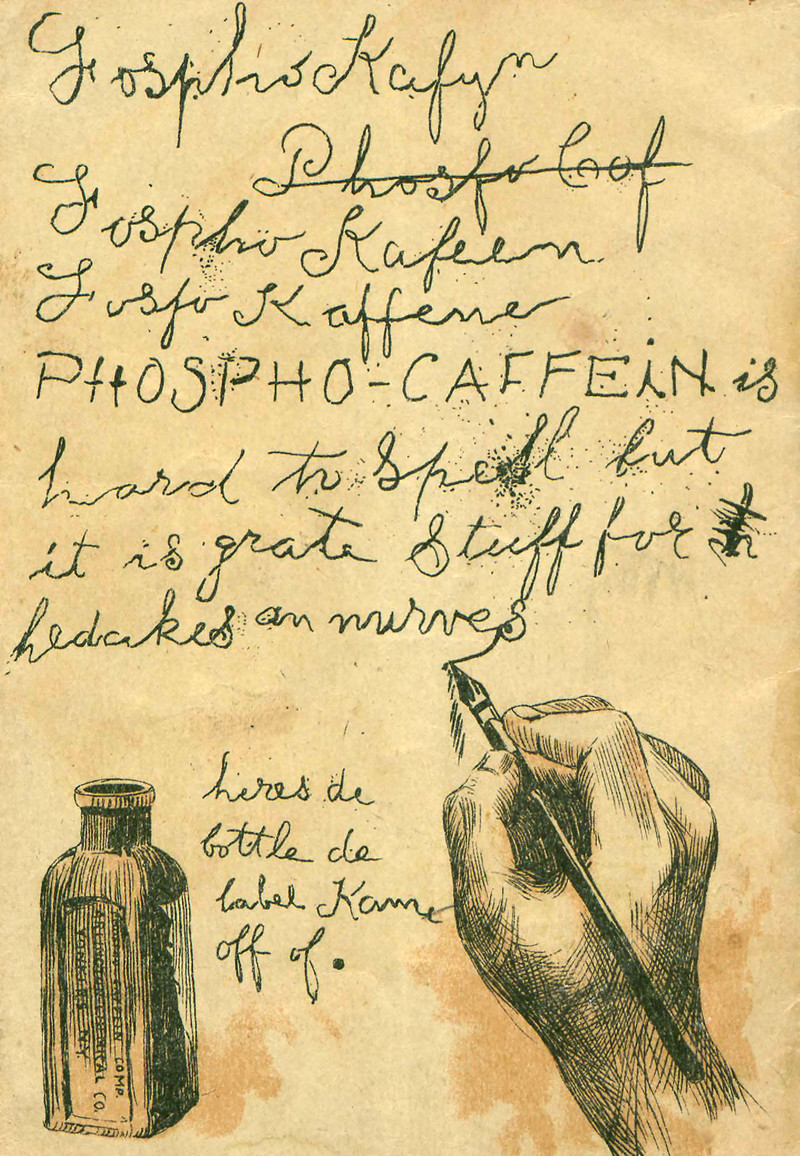 Fospho Kafyn
Phosfo Cof
Fospho Kafeen
Fosfo Kaffene
PHOSPHO-CAFFEiN is
hard to Spell but
it is grate Stuff for
hedakes an nurves
heres de
bottle de
label Kame
off of.
COMP.
CO.
YONKERS N.Y.